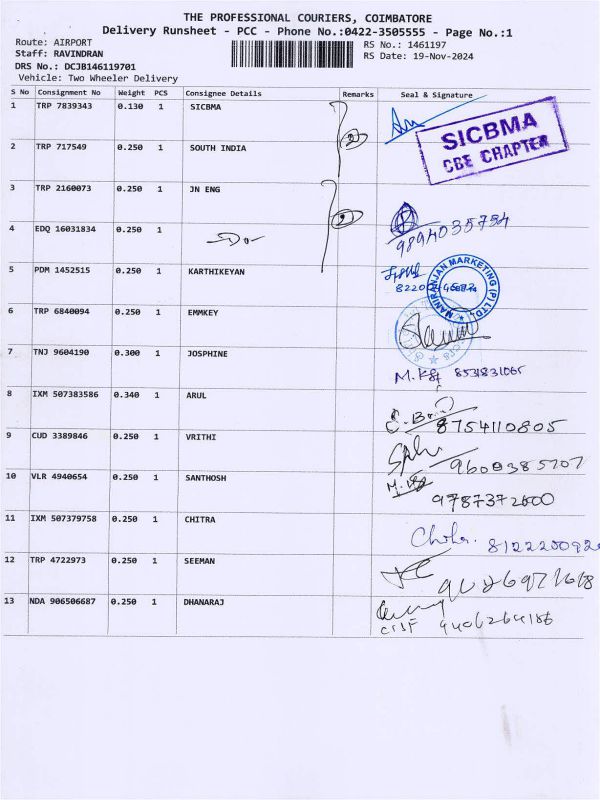 THE PROFESSIONAL COURIERS, COIMBATORE
Delivery Runsheet - PCC - Phone No.:0422-3505555 - Page No.:1
Route: AIRPORT
Staff: RAVINDRAN
DRS No.: DCJB146119701
Vehicle: Two Wheeler Delivery
RS No.: 1461197
RS Date: 19-Nov-2024
S No Consignment No Weight PCS Consignee Details Remarks Seal & Signature
1 TRP 7839343 0.130 1 SICBMA
SICBMA
CBE CHAPTER
2 TRP 717549 0.250 1 SOUTH INDIA
3 TRP 2160073 0.250 1 JN ENG
9894035754
4 EDQ 16031834 0.250 1 -Do-
5 PDM 1452515 0.250 1 KARTHIKEYAN
MANIRANJAN MARKETING (P) LTD.
6 TRP 6840094 0.250 1 EMMKEY
7 TNJ 9604190 0.300 1 JOSPHINE
8531831065
8 IXM 507383586 0.340 1 ARUL
8754110805
9 CUD 3389846 0.250 1 VRITHI
9600385707
10 VLR 4940654 0.250 1 SANTHOSH
9787372600
11 IXM 507379758 0.250 1 CHITRA
812220092
12 TRP 4722973 0.250 1 SEEMAN
13 NDA 906506687 0.250 1 DHANARAJ
CISF 9406264186